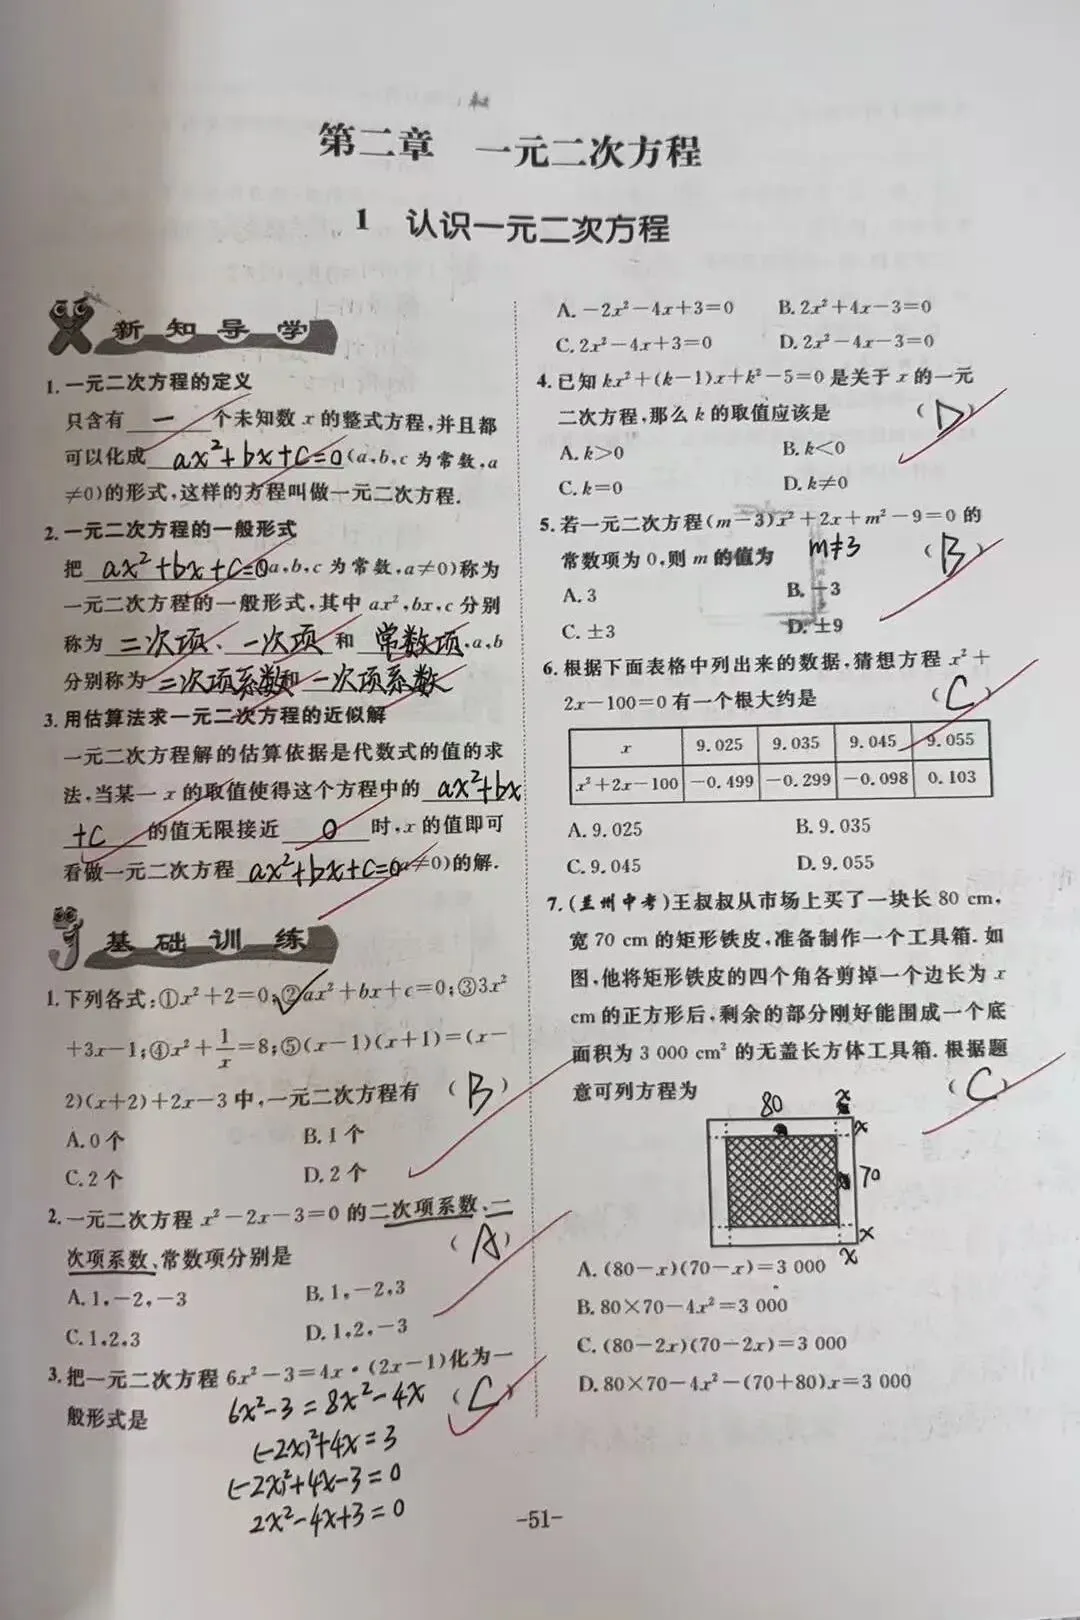 第二章 一元二次方程
1 认识一元二次方程
新知导学
1.一元二次方程的定义
只含有 一 个未知数 x 的整式方程,并且都
可以化成 ax²+bx+c=0 (a,b,c 为常数,a
≠0)的形式,这样的方程叫做一元二次方程.
2.一元二次方程的一般形式
把 ax²+bx+c=0 (a,b,c 为常数,a≠0)称为
一元二次方程的一般形式,其中 ax²,bx,c 分别
称为 二次项、一次项 和 常数项,a,b
分别称为 二次项系数和 一次项系数
3.用估算法求一元二次方程的近似解
一元二次方程解的估算依据是代数式的值的求
法,当某一 x 的取值使得这个方程中的 ax²+bx
+c 的值无限接近 0 时,x 的值即可
看做一元二次方程 ax²+bx+c=0(a≠0)的解.
基础训练
1.下列各式:①x²+2=0;②ax²+bx+c=0;③3x²
+3x-1;④x²+1/x=8;⑤(x-1)(x+1)=(x-
2)(x+2)+2x-3中,一元二次方程有 (B)
A.0个 B.1个
C.2个 D.2个
2.一元二次方程 x²-2x-3=0 的二次项系数、二
次项系数、常数项分别是 (A)
A.1,-2,-3 B.1,-2,3
C.1,2,3 D.1,2,-3
3.把一元二次方程 6x²-3=4x·(2x-1)化为一
般形式是 (C)
6x²-3=8x²-4x
(-2x)²+4x=3
(-2x)²+4x-3=0
2x²-4x+3=0
A.-2x²-4x+3=0 B.2x²+4x-3=0
C.2x²-4x+3=0 D.2x²-4x-3=0
4.已知 kx²+(k-1)x+k²-5=0 是关于 x 的一元
二次方程,那么 k 的取值应该是 (D)
A.k>0 B.k<0
C.k=0 D.k≠0
5.若一元二次方程(m-3)x²+2x+m²-9=0 的
常数项为 0,则 m 的值为 m≠3 (B)
A.3 B.-3
C.±3 D.±9
6.根据下面表格中列出来的数据,猜想方程 x²+
2x-100=0 有一个根大约是 (C)
x 9.025 9.035 9.045 9.055
x²+2x-100 -0.499 -0.299 -0.098 0.103
A.9.025 B.9.035
C.9.045 D.9.055
7.(兰州中考)王叔叔从市场上买了一块长 80 cm,
宽 70 cm 的矩形铁皮,准备制作一个工具箱.如
图,他将矩形铁皮的四个角各剪掉一个边长为 x
cm 的正方形后,剩余的部分刚好能围成一个底
面积为 3 000 cm² 的无盖长方体工具箱.根据题
意可列方程为 (C)
80 x
x
70
x
x
A.(80-x)(70-x)=3 000
B.80×70-4x²=3 000
C.(80-2x)(70-2x)=3 000
D.80×70-4x²-(70+80)x=3 000
-51-